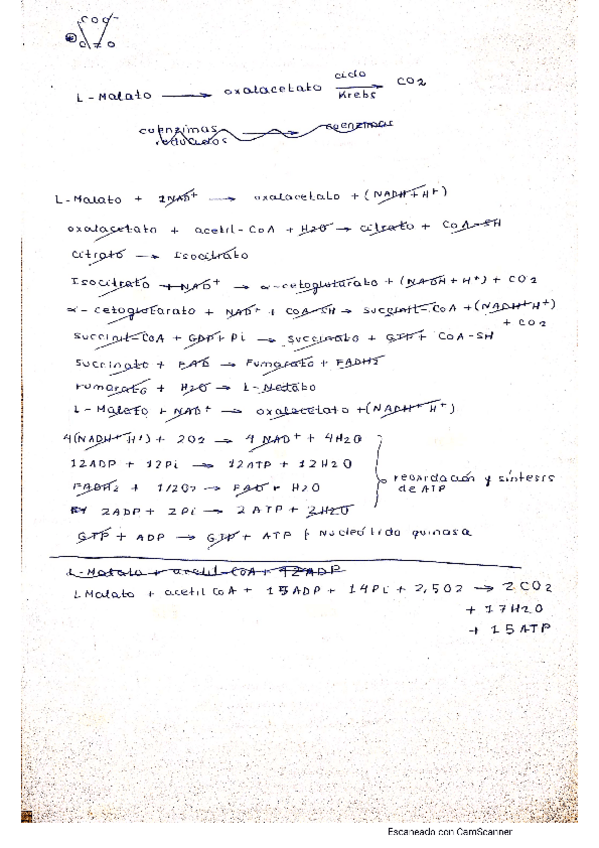 L-Malato → oxalacetato ciclo Krebs → CO2
coenzimas reducidas → coenzimas
L-Malato + 2NAD+ → oxalacetato + (NADH+H+)
oxalacetato + acetil-CoA + H2O → citrato + CoA-SH
citrato → Isocitrato
Isocitrato + NAD+ → α-cetoglutarato + (NADH + H+) + CO2
α-cetoglutarato + NAD+ + COA-SH → succinil-CoA + (NADH+H+)
+ CO2
Succinil-CoA + GDP + Pi → Succinato + GTP + COA-SH
Succinato + FAD → Fumarato + FADH2
Fumarato + H2O → L-Malato
L-Malato + NAD+ → oxalacetato + (NADH+H+)
4(NADH+H+) + 2O2 → 4 NAD+ + 4H2O
12ADP + 12Pi → 12ATP + 12H2O
reoxidación y síntesis
de ATP
FADH2 + 1/2O2 → FAD + H2O
2ADP + 2Pi → 2 ATP + 2H2O
GTP + ADP → GTP + ATP Nucleótido quinasa
L-Malato + acetil-CoA + 12ADP
L Malato + acetil CoA + 15ADP + 14Pi + 2,5O2 → 2CO2
+ 17H2O
+ 15ATP
Escaneado con CamScanner